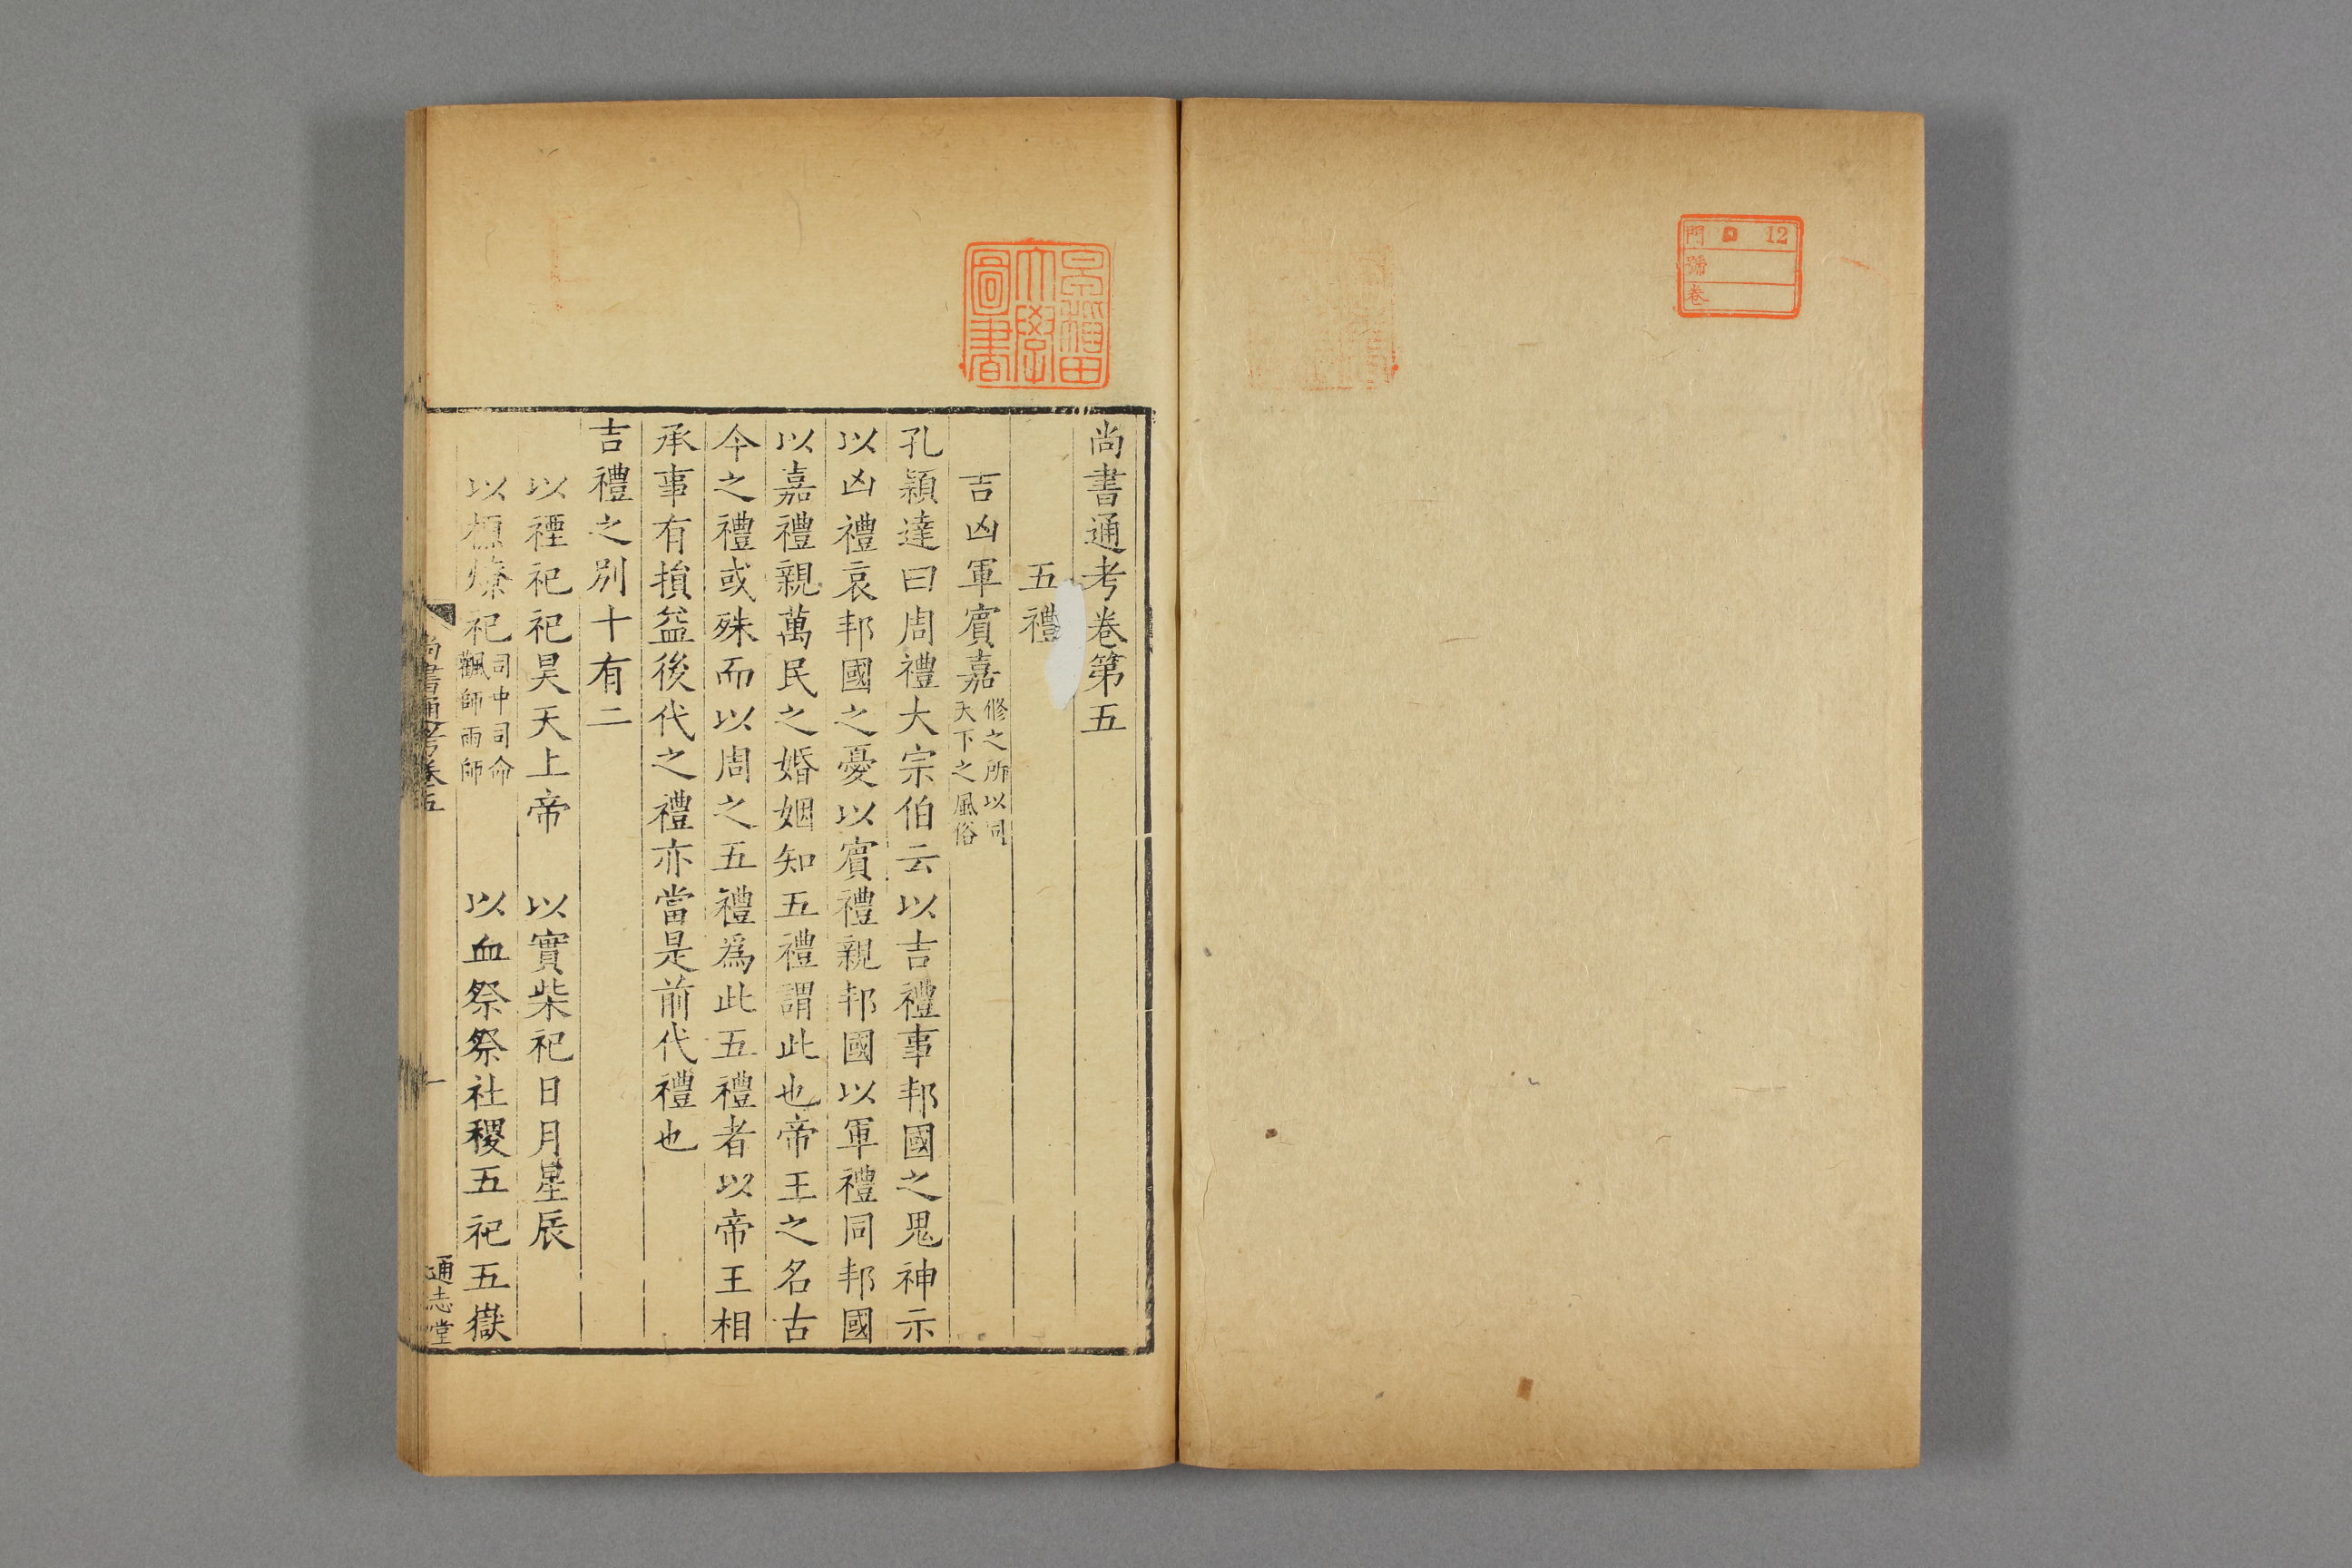 門 口 12
號
卷
早稲田
大學
圖書
尚書通考卷第五
五禮
吉凶軍賓嘉修之所以同天下之風俗
孔穎達曰周禮大宗伯云以吉禮事邦國之鬼神示
以凶禮哀邦國之憂以賓禮親邦國以軍禮同邦國
以嘉禮親萬民之婚姻知五禮謂此也帝王之名古
今之禮或殊而以周之五禮爲此五禮者以帝王相
承事有損益後代之禮亦當是前代禮也
吉禮之別十有二
以禋祀祀昊天上帝 以實柴祀日月星辰
以槱燎祀司中司命飌師雨師 以血祭祭社稷五祀五嶽
尚書通考卷五
一
通志堂